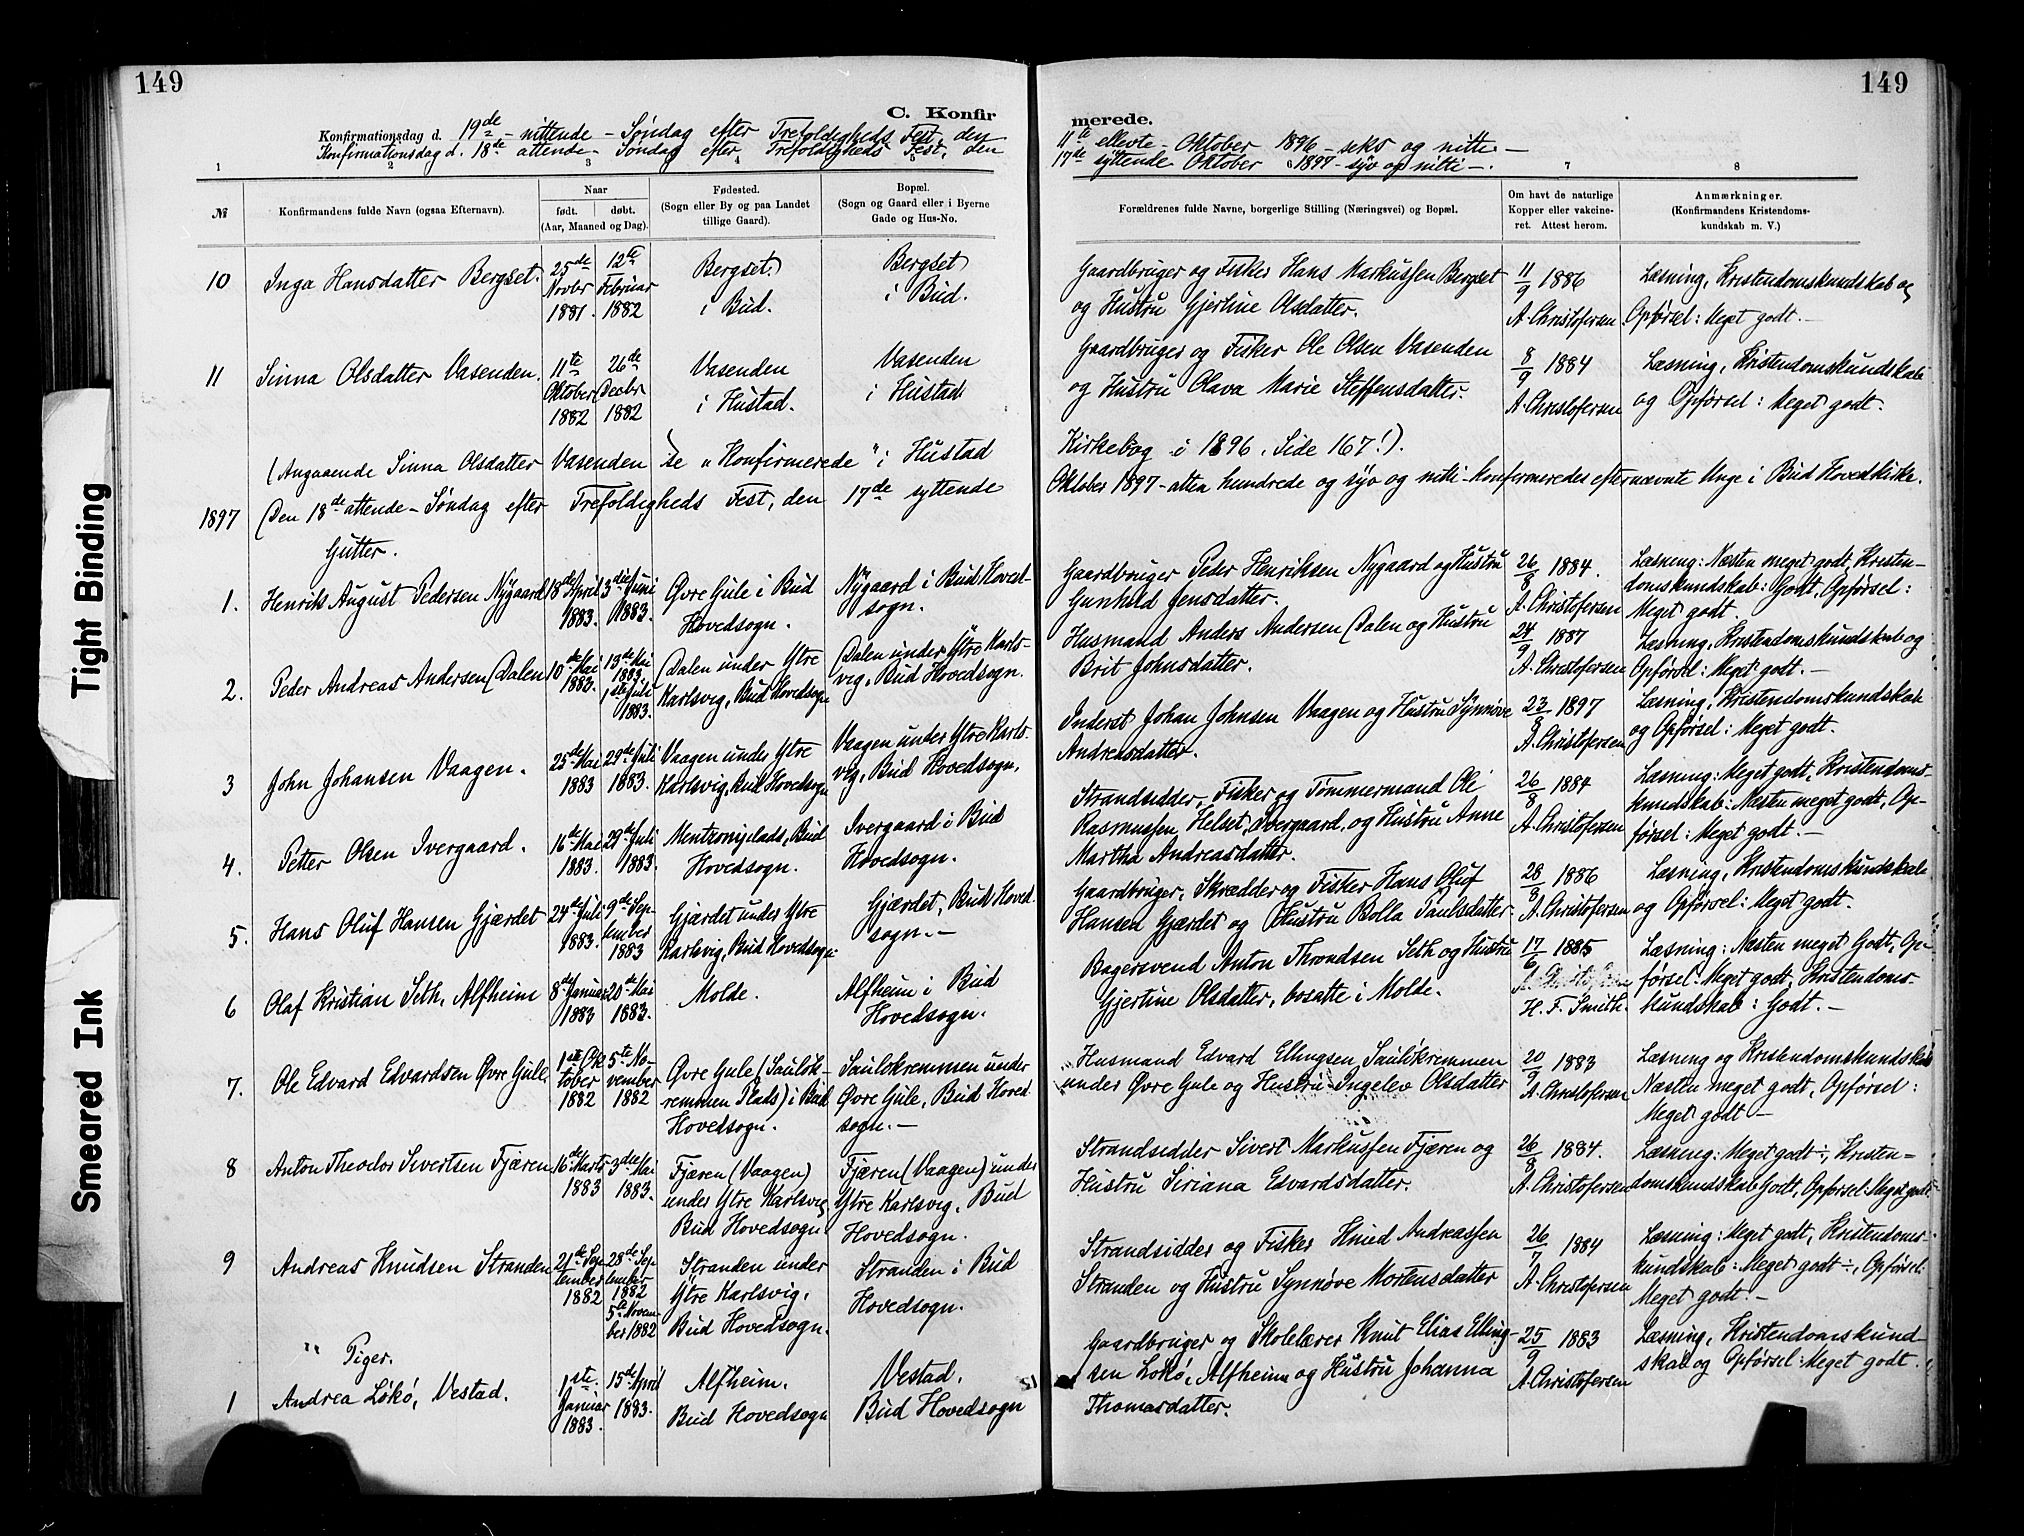 149
149
C. Konfir
merede.
Konfirmationsdag d. 19de - nittende - Søndag efter Trefoldigheds Fest, den 11te ellevte Oktober 1896 - seks og nitti -
Konfirmationsdag d. 18de attende - Søndag efter Trefoldigheds Fest, den 17de syttende Oktober 1897 - syv og nitti -.
1 2 3 4 5 6 7 8
№
Konfirmandens fulde Navn (ogsaa Efternavn).
Naar
født. døbt.
(Aar, Maaned og Dag).
Fødested.
(Sogn eller By og paa Landet
tillige Gaard).
Bopæl.
(Sogn og Gaard eller i Byerne
Gade og Hus-No.
Forældrenes fulde Navne, borgerlige Stilling (Næringsvei) og Bopæl.
Om havt de naturlige
Kopper eller vakcine-
ret. Attest herom.
Anmærkninger.
(Konfirmandens Kristendoms-
kundskab m. V.)
10 Inga Hansdatter Bergset.
25de Novbr 1881.
12te Februar 1882
Bergset i Bud.
Bergset i Bud.
Gaardbruger og Fisker Hans Markussen Bergset
og Hustru Gjertine Olsdatter.
11/9 1886
A. Christofersen
Læsning, Kristendomskundskab og
Opførsel: Meget godt. -
11 Sinna Olsdatter Vasenden.
11te Oktober 1882
26de Decbr 1882
Vasenden i Hustad.
Vasenden i Hustad
Gaardbruger og Fisker Ole Olsen Vasenden
og Hustru Olava Marie Steffensdatter.
8/9 1884
A. Christofersen
Læsning, Kristendomskundskab
og Opførsel: Meget godt.
(Angaaende Sinna Olsdatter Vasenden se "Konfirmerede" i Hustad Kirkebog i 1896, Side 167!).
1897 Den 18de attende - Søndag efter Trefoldigheds Fest, den 17de syttende Oktober 1897 - atten hundrede og syv og nitti - konfirmeredes efternævnte Unge i Bud Hovedkirke.
Gutter.
1. Henrik August Pedersen Nygaard
18de April 1883.
3die Juni 1883.
Øvre Gule i Bud
Hovedsogn.
Nygaard i Bud Hoved-
sogn.
Gaardbruger Peder Henriksen Nygaard og Hustru
Gunhild Jensdatter.
26/8 1884.
A. Christofersen
Læsning: Næsten meget godt, Kristen-
domskundskab: Godt, Opførsel:
Meget godt.
2. Peder Andreas Andersen Dalen
10de Mai 1883.
13de Mai 1883
1ste Juli 1883.
Dalen under Ytre
Karlsvig, Bud Hovedsogn
Dalen under Ytre Karls-
vig, Bud Hovedsogn.
Husmand Anders Andersen Dalen og Hustru
Brit Johnsdatter.
24/9 1887
A. Christofersen
Læsning, Kristendomskundskab og
Opførsel: Meget godt. -
3 John Johansen Vaagen.
25de Mai 1883
29de Juli 1883.
Vaagen under Ytre
Karlsvig, Bud Hovedsogn
Vaagen under Ytre Karls-
vig, Bud Hovedsogn.
Inderst Johan Johnsen Vaagen og Hustru Synnøve
Andreasdatter.
23/8 1897
A. Christofersen
Læsning, Kristendomskundskab
og Opførsel: Meget godt.
4. Petter Olsen Ivergaard.
16de Mai 1883.
29de Juli 1883.
Bud
Hovedsogn.
Ivergaard i Bud
Hovedsogn.
Strandsidder, Fisker og Tømmermand Ole
Rasmussen Helset, Ivergaard, og Hustru Anne
Martha Andreasdatter.
26/8 1884
A. Christofersen
Læsning: Meget godt, Kristendoms-
kundskab: Næsten meget godt, Op-
førsel: Meget godt. -
5. Hans Oluf Hansen Gjærdet
24de Juli 1883.
9de September 1883
Gjærdet under Ytre
Karlsvig, Bud Hovedsogn
Gjærdet, Bud Hoved-
sogn. -
Gaardbruger, Skrædder og Fisker Hans Oluf
Hansen Gjærdet og Hustru Bolla Paulsdatter
28/8 1886
A. Christofersen
Læsning, Kristendomskundskab
og Opførsel: Meget godt.
6 Olaf Kristian Seth, Alfheim
8de Januar 1883
20de Mai 1883.
Molde.
Alfheim i Bud
Hovedsogn.
Bagersvend Anton Throndsen Seth og Hustru
Gjertine Olsdatter, bosatte i Molde.
17/6 1885
H. F. Smith.
Læsning: Næsten meget Godt, Op-
førsel: Meget godt, Kristendoms-
kundskab: Godt. -
7. Ole Edvard Edvardsen Øvre Gule,
1ste Oktober 1882
5te November 1882
Øvre Gule (Saulok-
remmen Plads) i Bud
Hovedsogn.
Saulokremmen under
Øvre Gule, Bud Hoved
sogn. -
Husmand Edvard Ellingsen Saulokremmen
under Øvre Gule og Hustru Ingelev Olsdatter
20/9 1883
A. Christofersen
Læsning og Kristendomskundskab
Næsten meget godt, Opførsel:
Meget godt -
8 Anton Theodor Sivertsen Fjæren
16de Marts 1883
3die Mai 1883.
Fjæren (Vaagen)
under Ytre Karlsvig
Bud Hovedsogn
Fjæren (Vaagen) under
Ytre Karlsvig, Bud
Hovedsogn.
Strandsidder Sivert Markussen Fjæren og
Hustru Siriana Edvardsdatter.
26/8 1884.
A. Christofersen
Læsning: Meget godt ÷, Kristen-
domskundskab Godt, Opførsel: Meget godt
9 Andreas Knudsen Stranden
21de September 1882
28de September 1882
5te November 1882
Stranden under
Ytre Karlsvig,
Bud Hovedsogn.
Stranden i Bud
Hovedsogn.
Strandsidder og Fisker Knud Andreassen
Stranden og Hustru Synnøve Mortensdatter
26/7 1884
A. Christofersen
Læsning: Meget godt, Kristendoms-
kundskab: Meget godt ÷, Opførsel:
Meget godt. -
" Piger.
1 Andrea Løkø, Vestad.
1ste Januar 1883.
15de April 1883.
Alfheim.
Bud Hovedsogn
Vestad.
Bud Hovedsogn
Gaardbruger og Skolelærer Knut Elias Elling-
sen Løkø, Alfheim og Hustru Johanna
Thomasdatter.
25/9 1883
A. Christofersen
Læsning, Kristendomskund-
skab og Opførsel: Meget godt.
Tight Binding
Smeared Ink